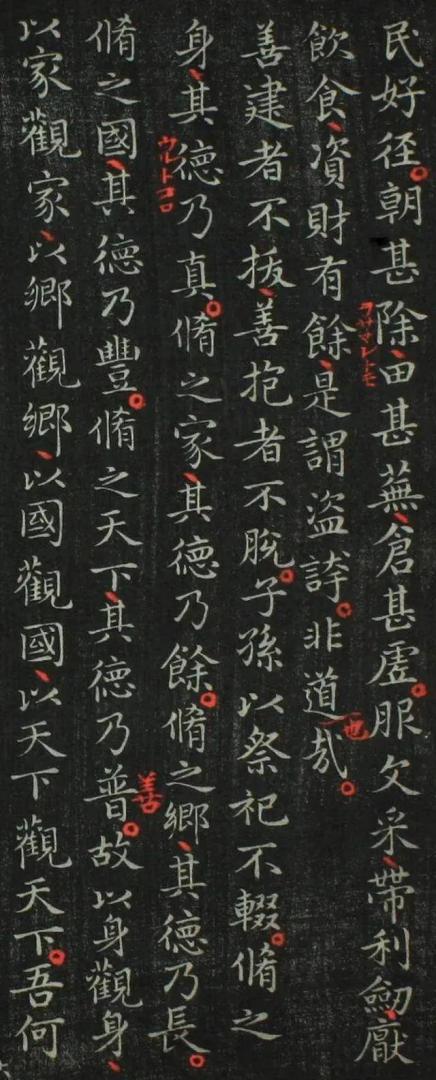 民好径。朝甚除、田甚蕪、倉甚虛。服文采、帶利劒、厭
飲食、資財有餘、是謂盜誇。非道也哉。
善建者不拔、善抱者不脫。子孫以祭祀不輟。脩之
身、其德乃真。脩之家、其德乃餘。脩之鄉、其德乃長。
ウルトコロ
脩之國、其德乃豐。脩之天下、其德乃普。故以身觀身、
善
以家觀家、以鄉觀鄉、以國觀國、以天下觀天下。吾何